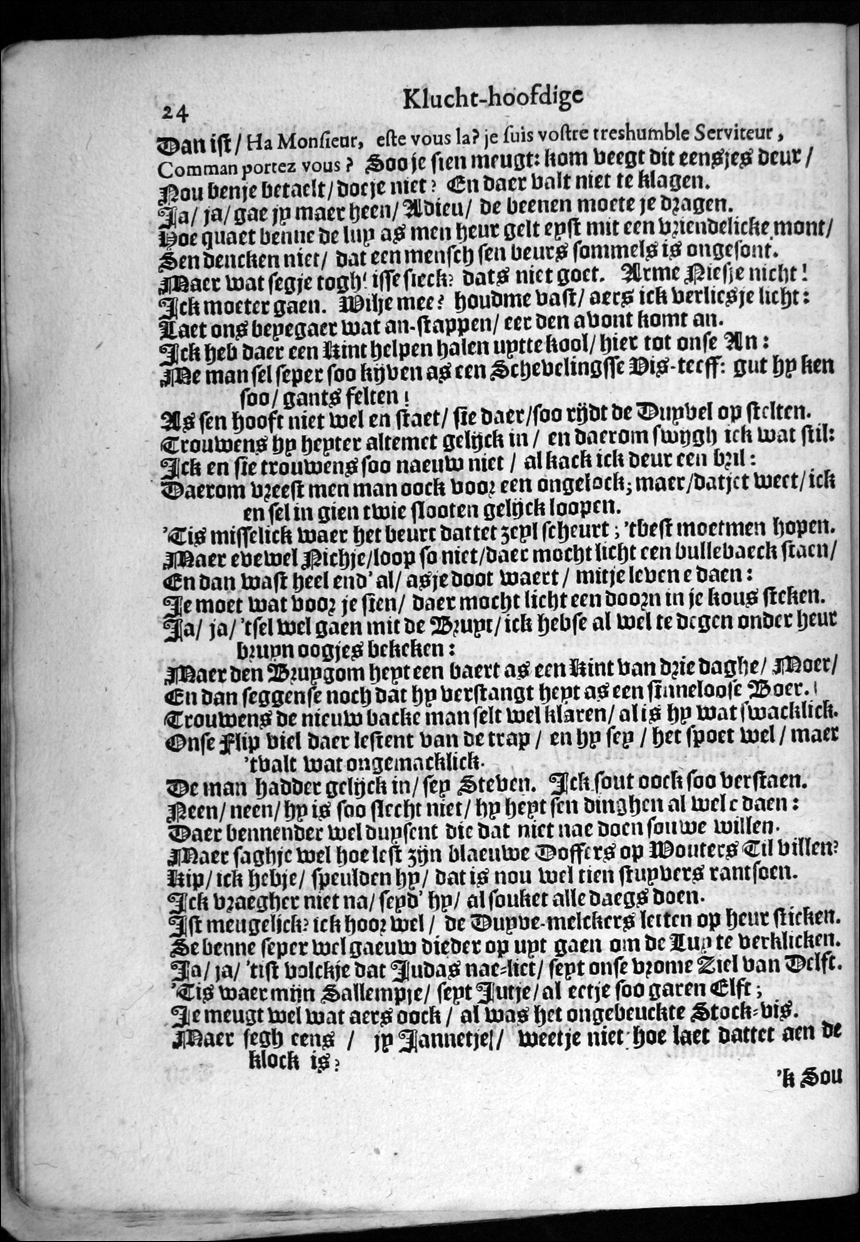 24
Klucht-hoofdige
Dan ist/ Ha Monsieur, este vous la? je suis vostre treshumble Serviteur,
Comman portez vous? Soo je sien meugt: kom veegt dit eensjes deur/
Nou benje betaelt/ doeje niet? En daer valt niet te klagen.
Ja/ ja/ gae jy maer heen/ Adieu/ de beenen moete je dragen.
Hoe quaet benne de luy as men heur gelt eyst mit een vriendelicke mont/
Sen dencken niet/ dat een mensch sen beurs sommels is ongesont.
Maer wat segje togh! isse sieck? dats niet goet. Arme Niesje nicht!
Ick moeter gaen. Wilje mee? houdme vast/ aers ick verliesje licht:
Laet ons beyegaer wat an-stappen/ eer den avont komt an.
Ick heb daer een Kint helpen halen uytte kool/ hier tot onse An:
Me man sel seper soo kyven as een Schevelingsse Vis-teeff: gut hy ken
soo/ gants felten!
As sen hooft niet wel en staet/ sie daer/ soo rijdt de Duyvel op stelten.
Trouwens hy heyter altemet gelijck in/ en daerom swygh ick wat stil:
Ick en sie trouwens soo naeuw niet/ al kack ick deur een bril:
Daerom vreest men man oock voor een ongelock; maer/ datjet weet/ ick
en sel in gien twie slooten gelijck loopen.
'Tis misselick waer het beurt dattet zeyl scheurt; 'tbest moetmen hopen.
Maer evewel Nichje/ loop so niet/ daer mocht licht een bullebaeck staen/
En dan wast heel end' al/ asje doot waert/ mitje levene daen:
Je moet wat voor je sien/ daer mocht licht een doorn in je kous steken.
Ja/ ja/ 'tsel wel gaen mit de Bruyt/ ick hebse al wel te degen onder heur
bruyn oogjes bekeken:
Maer den Bruygom heyt een baert as een Kint van drie daghe/ Moer/
En dan seggense noch dat hy verstangt heyt as een sinneloose Boer.
Trouwens de nieuw backe man selt wel klaren/ al is hy wat swacklick.
Onse Flip viel daer lestent van de trap/ en hy sey/ het spoet wel/ maer
'tvalt wat ongemacklick.
De man hadder gelijck in/ sey Steven. Ick sout oock soo verstaen.
Neen/ neen/ hy is soo slecht niet/ hy heyt sen dinghen al wel e daen:
Daer bennender wel duysent die dat niet nae doen souwe willen.
Maer saghje wel hoe lest zijn blaeuwe Doffers op Wouters Til villen?
Kip/ ick hebje/ speulden hy/ dat is nou wel tien stuyvers rantsoen.
Ick vraegher niet na/ seyd' hy/ al souket alle daegs doen.
Ist meugelick? ick hoor wel/ de Duyve-melckers letten op heur sticken.
Se benne seper wel gaeuw die der op uyt gaen om de Luy te verklicken.
Ja/ ja/ 'tist volckje dat Judas nae-liet/ seyt onse vrome Ziel van Delft.
'Tis waer mijn Sallempje/ seyt Jutje/ al eetje soo garen Elft;
Je meugt wel wat aers oock/ al was het ongebeuckte Stock-vis.
Maer segh eens/ jy Jannetje/ weetje niet hoe laet dattet aen de
klock is?
'k Sou